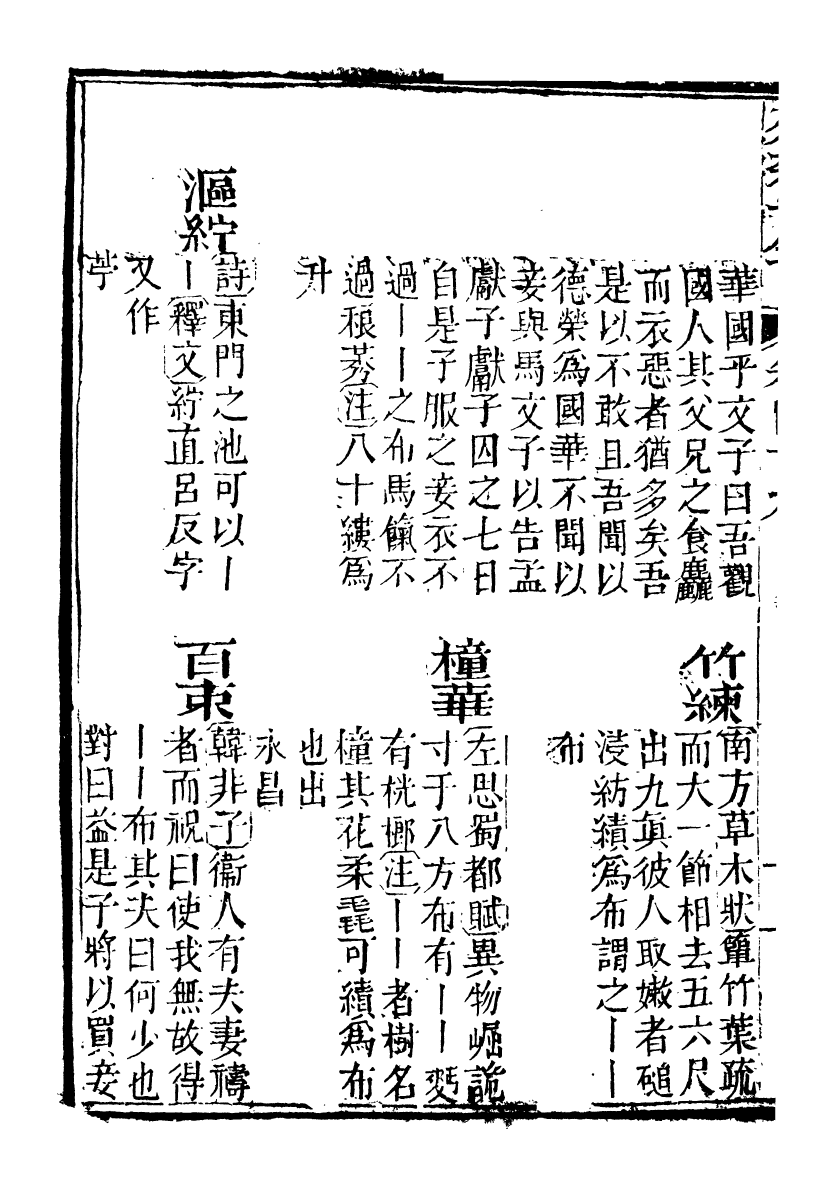 華國乎文子曰吾觀
國人其父兄之食麤
而衣惡者猶多矣吾
是以不敢且吾聞以
德榮爲國華不聞以
妾與馬文子以告孟
獻子獻子囚之七日
自是子服之妾衣不
過丨丨之布馬餼不
過稂莠注八十縷爲
升
漚紵
詩東門之池可以丨
丨釋文紵直呂反字
又作
苧
竹練
南方草木狀簞竹葉疏
而大一節相去五六尺
出九眞彼人取嫩者磓
浸紡績爲布謂之丨丨
布
橦華
左思蜀都賦異物崛詭
寸于八方布有丨丨麪
有桄榔注丨丨者樹名
橦其花柔毳可績爲布
也出
永昌
百束
韓非子衞人有夫妻禱
者而祝曰使我無故得
丨丨布其夫曰何少也
對曰益是子將以買妾